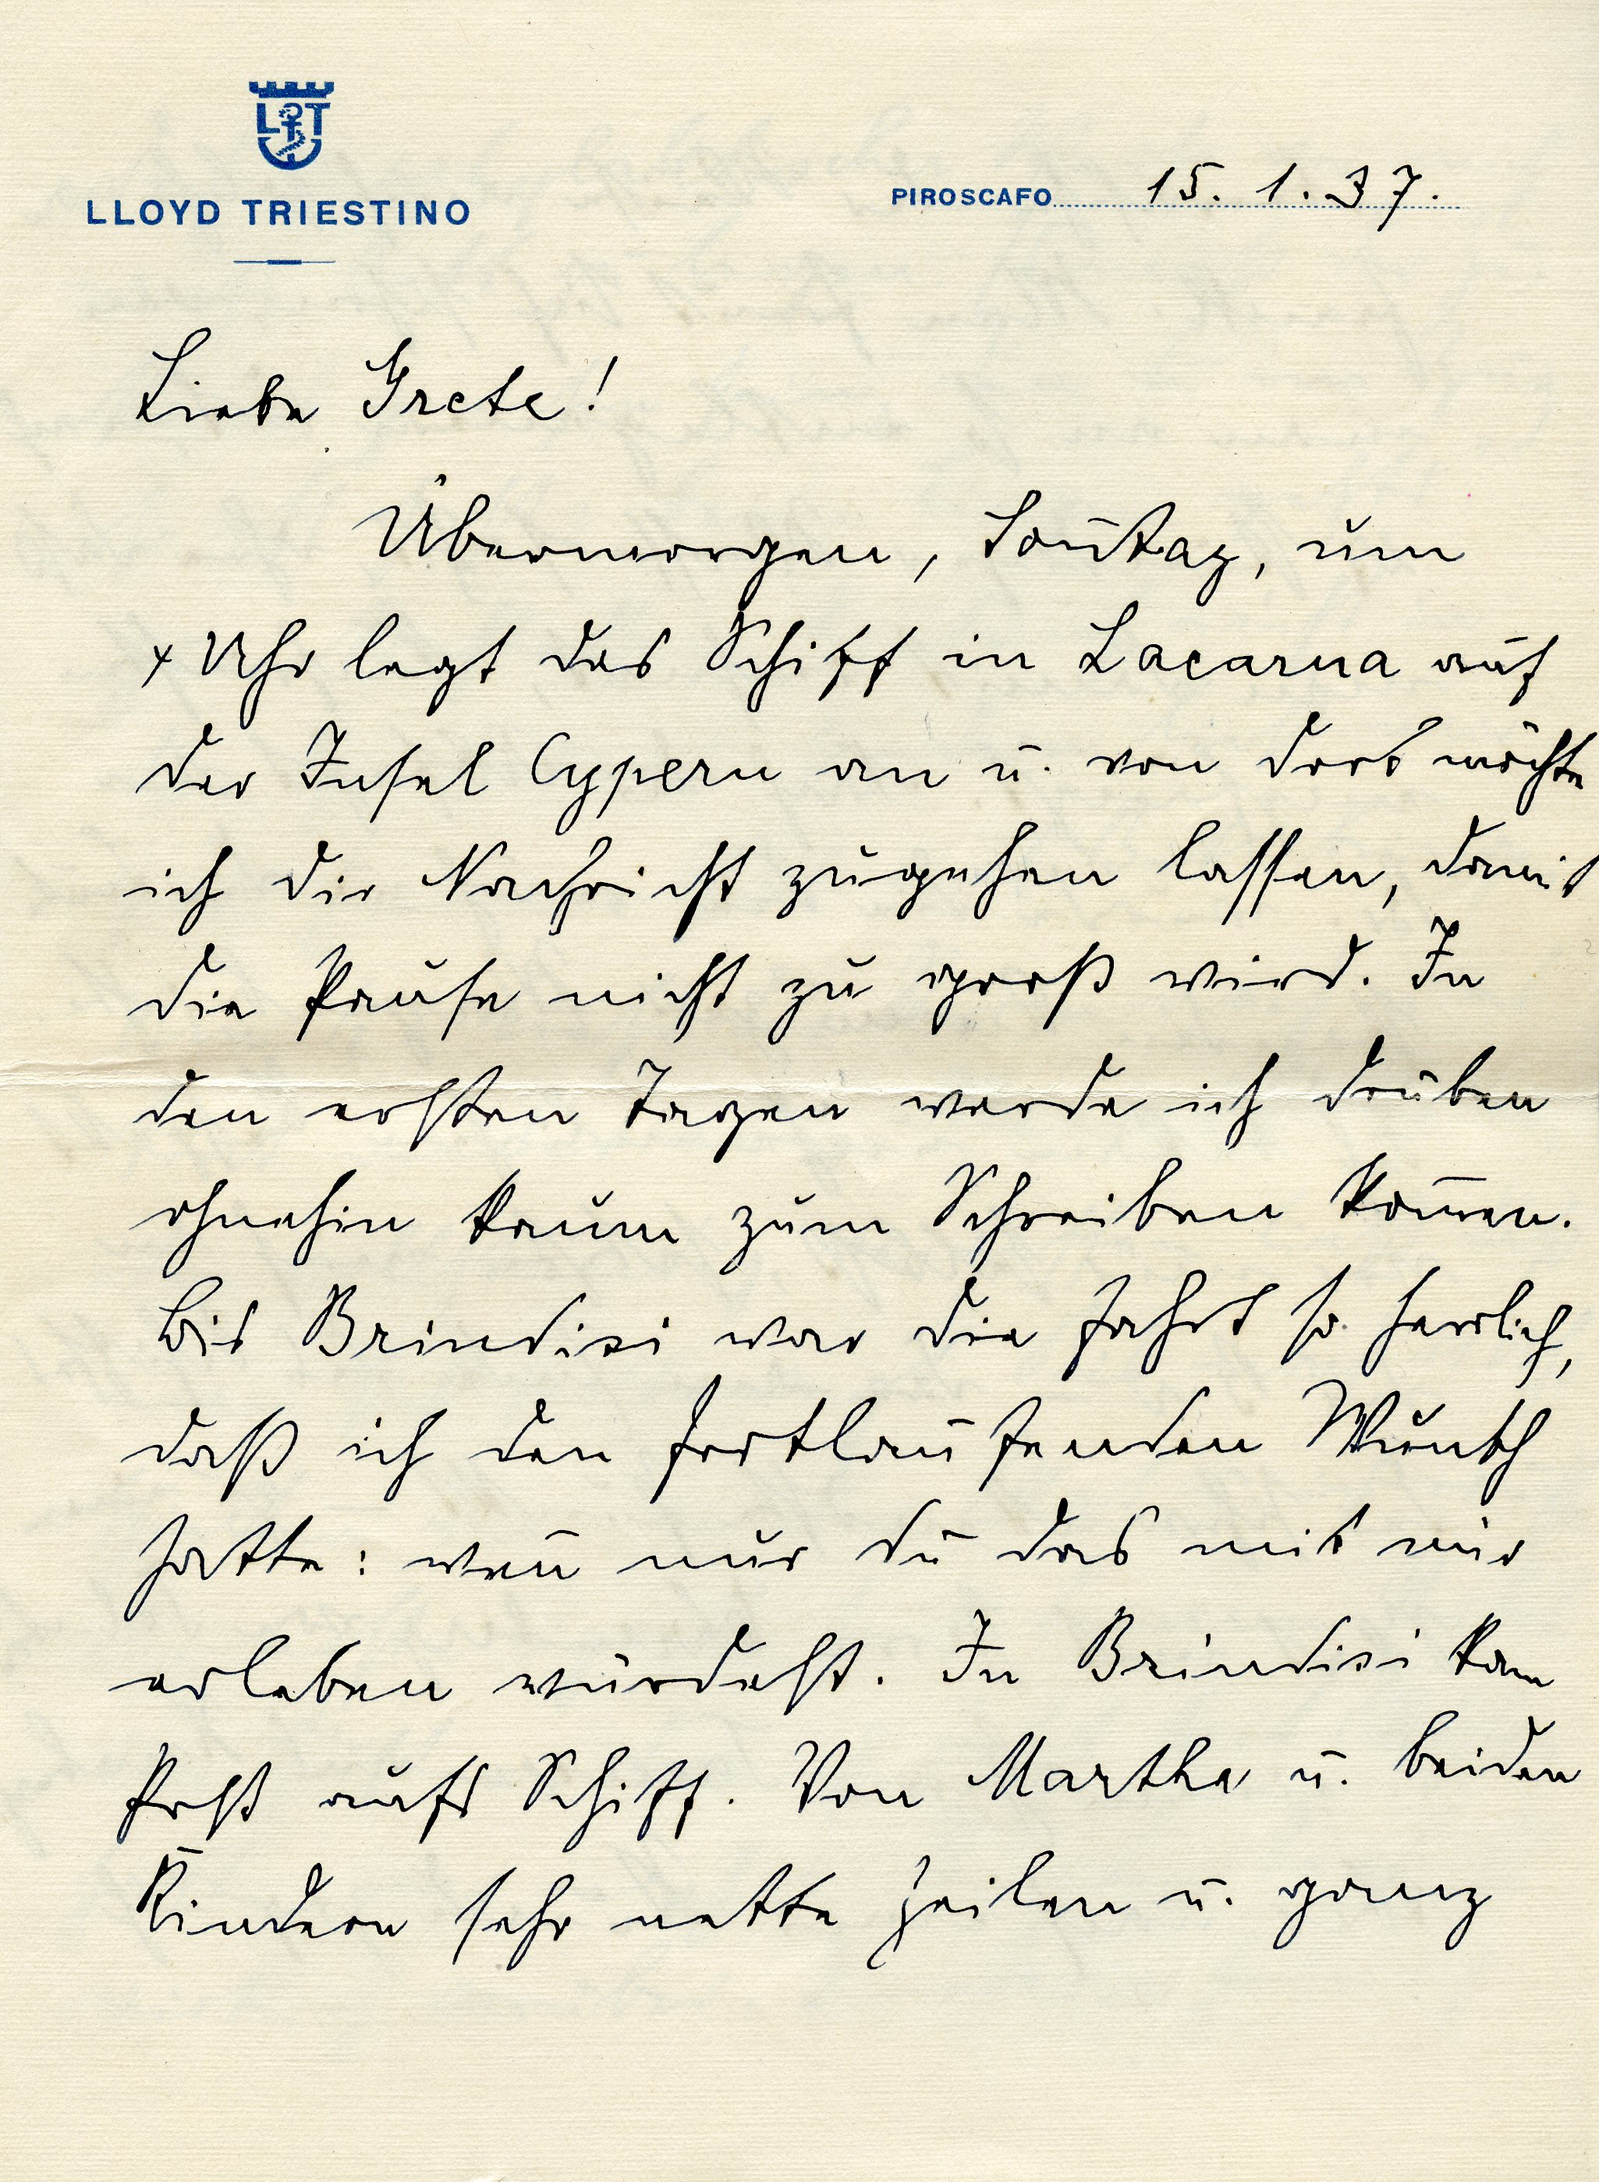 LLOYD TRIESTINO
PIROSCAFO 15. 1. 37.
Liebe Grete!
Übermorgen, Soñtag, um
Uhr legt das Schiff in Lacarna auf
der Insel Cypern an u. von dort möchte
ich die Nachricht zugehen lassen, damit
die Pause nicht zu groß wird. In
den ersten Tagen werde ich drüben
ohnehin kaum zum Schreiben kom̄en.
Bis Brindisi war die Fahrt so herrlich,
daß ich den fortlaufenden Wunsch
hatte: weñ nur du das mit mir
erleben würdest. In Brindisi kam
Post aufs Schiff. Von Martha u. beiden
Kindern sehr nette Zeilen u. ganz